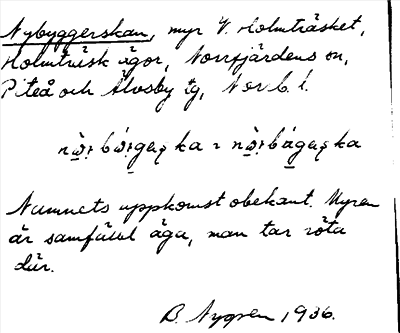 Nybyggerskan, myr V. Holmträsket,
Holmträsk ägor, Norrfjärdens sn,
Piteå och Älvsby tg, Norrb. l.
ka = ka
Namnets uppkomst obekant. Myren
är samfälld äga, man tar röta
där.
B. Nygren 1936.